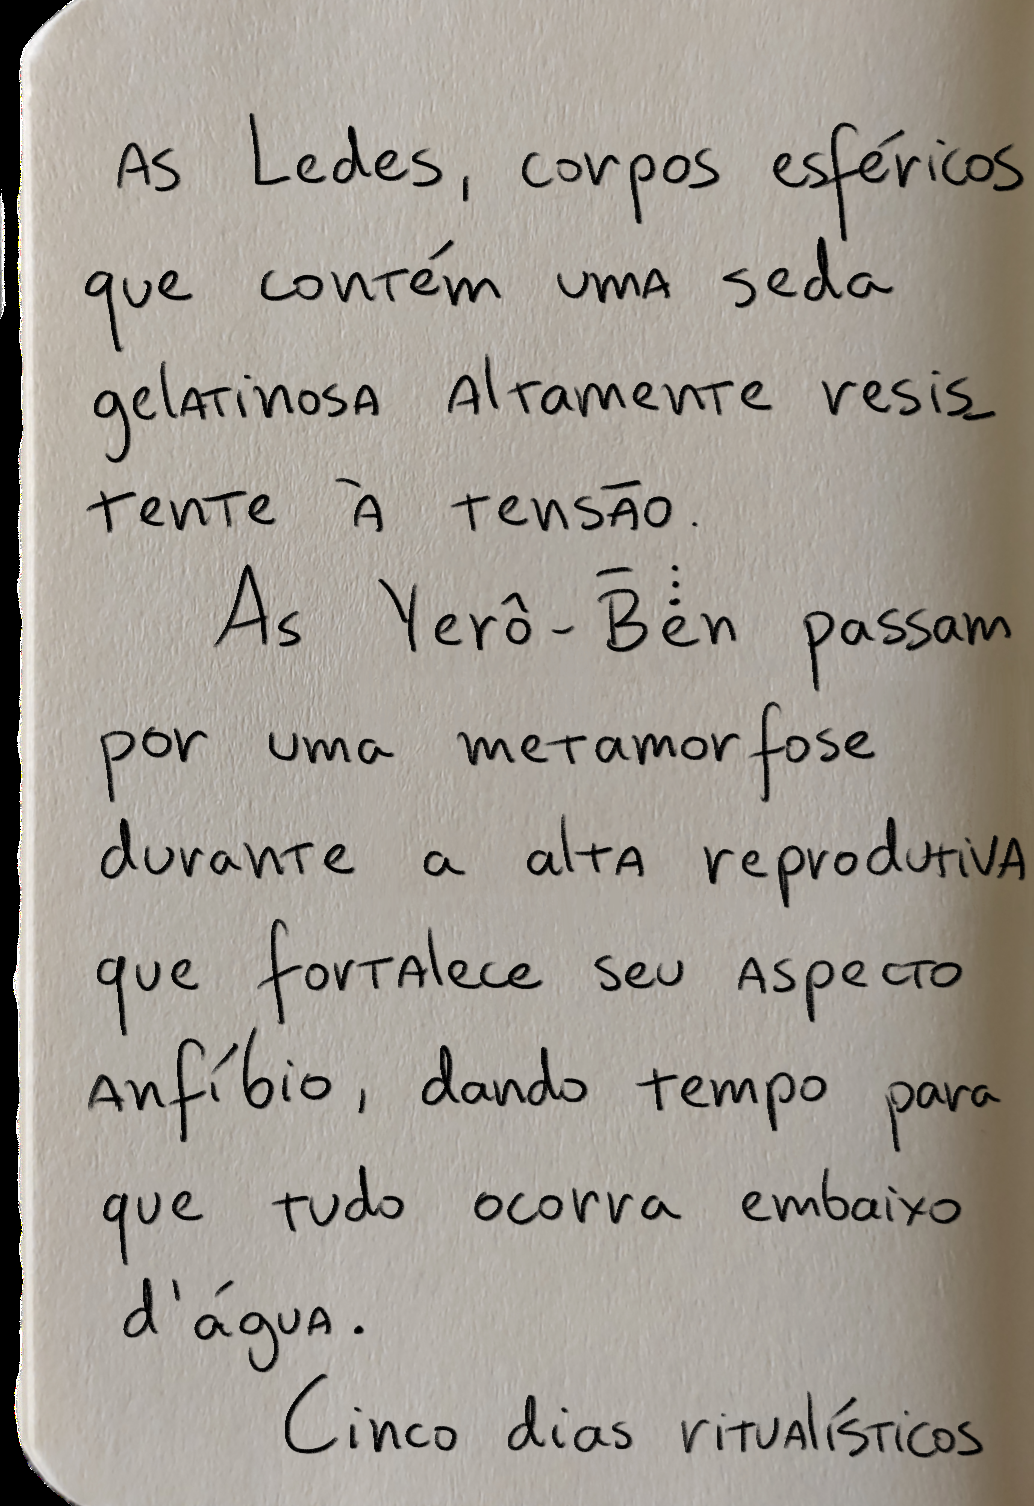 As Ledes, corpos esféricos
que contém uma seda
gelatinosa altamente resis_
tente à tensão.
As Yerô-B̄ėn passam
por uma metamorfose
durante a alta reprodutiva
que fortalece seu aspecto
anfíbio, dando tempo para
que tudo ocorra embaixo
d'água.
Cinco dias ritualísticos